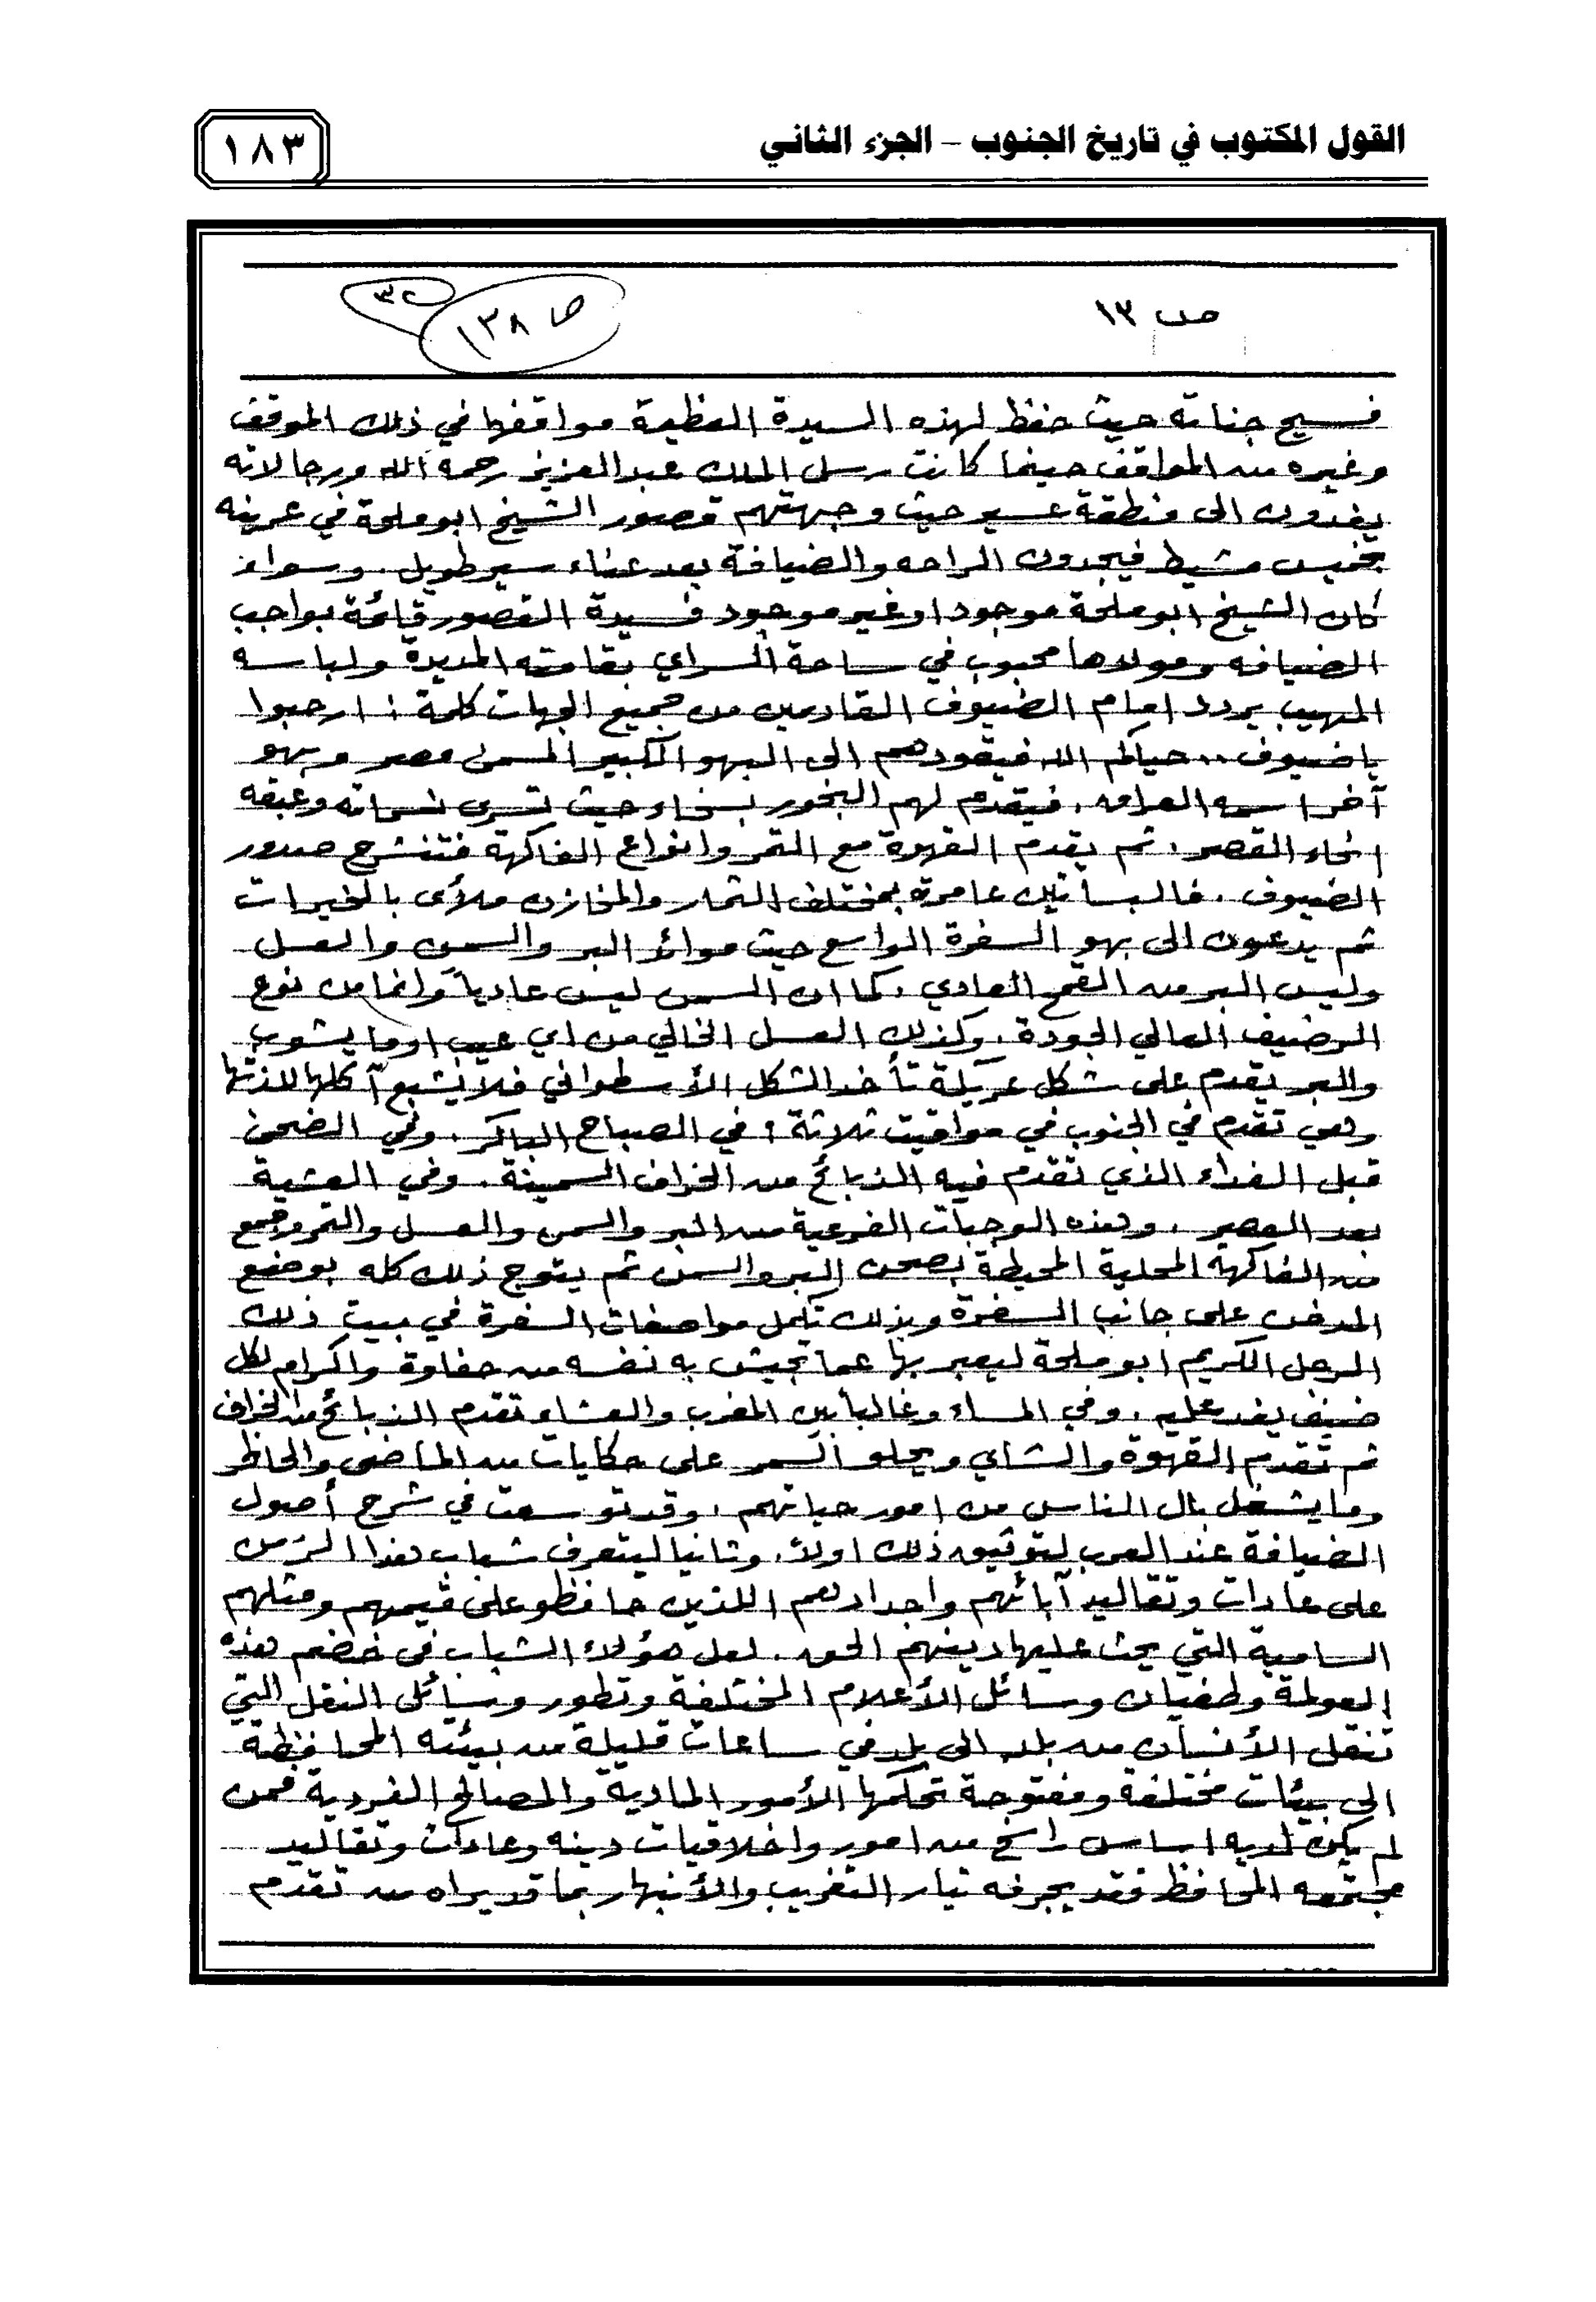 القول المكتوب في تاريخ الجنوب – الجزء الثاني
١٨٣
ص ١٣
ص ١٣٨
٣٢
فسيح جناته حيث حفظ لهذه السيدة العظيمة مواقفها في ذلك الموقف
وغيره من المواقف حينما كانت رسل الملك عبدالعزيز رحمه الله ورجالاته
يفدون الى منطقة عسير حيث وجهتهم قصور الشيخ ابو ملحة في عرينه
بخميس مشيط فيجدون الراحه والضيافة بعد عناء سير طويل. وسواء
كان الشيخ ابو ملحة موجود او غير موجود فسيدة القصور قائمة بواجب
الضيافه ومولاها محبوب في ساحة السراي بقامته المديدة ولباسه
المهيب يردد امام الضيوف القادمين من جميع الجهات كلمة : ارحبوا
ياضيوف .. حياكم الله فيقودهم الى البهو الكبير المسمى مصر وبهو
آخر اسمه العراق. فيقدم لهم البخور بسخاء حيث تسري نسماته وعبقه
انحاء القصر. ثم يقدم القهوة مع التمر وانواع الفاكهة فتنشرح صدور
الضيوف. فالبساتين عامرة بمختلف الثمار والمخازن ملأى بالخيرات
ثم يدعون الى بهو السفرة الواسع حيث موائد البر والسمن والعسل
وليس البر من القمح العادي. كما ان السمن ليس عادياً وانما من نوع
الرضيف العالي الجودة. وكذلك العسل الخالي من اي عيب او ما يشوب
والبر يقدم على شكل عريكة تأخذ الشكل الأسطواني فلا يشبع آكلها للذتها
وهي تقدم في الجنوب في مواقيت ثلاثة : في الصباح الباكر. وفي الضحى
قبل الغداء الذي تقدم فيه الذبائح من الخراف السمينة. وفي العشية
بعد العصر. وهذه الوجبات الفرعية من البر والسمن والعسل والتمر وجمع
من الفاكهة المحلية المحيطة بصحن البر والسمن ثم يتوج ذلك كله بوضع
المدخن على جانب السفرة وبذلك تكمل مواصفات السفرة في بيت ذلك
الرجل الكريم ابو ملحة ليعبر بها عما تجيش به نفسه من حفاوة واكرام لكل
ضيف يفد عليه. وفي المساء وغالباً بين المغرب والعشاء تقدم الذبائح من الخراف
ثم تقدم القهوة والشاي ويحلو السمر على حكايات من الماضي والحاظر
وما يشغل بال الناس من امور حياتهم. وقد توسعت في شرح أصول
الضيافة عند العرب لتوثيق ذلك اولاً. وثانيا ليتعرف شباب هذا الزمن
على عادات وتقاليد آبائهم واجدادهم اللذين حافظو على قيمهم ومثلهم
السامية التي يحث عليها دينهم الحق. لعل هؤلاء الشباب في خضم هذه
العولمة وطغيان وسائل الأعلام المختلفة وتطور وسائل النقل التي
تنقل الأنسان من بلد الى بلد في ساعات قليلة من بيئته المحافظة
الى بيئات مختلفة ومفتوحة تحكمها الأمور المادية والمصالح الفردية فمن
لم يكن لديه اساس راسخ من امور واخلاقيات دينه وعادات وتقاليد
مجتمعه المحافظ فقد يجرفه تيار التغريب والأنبهار بما قد يراه من تقدم